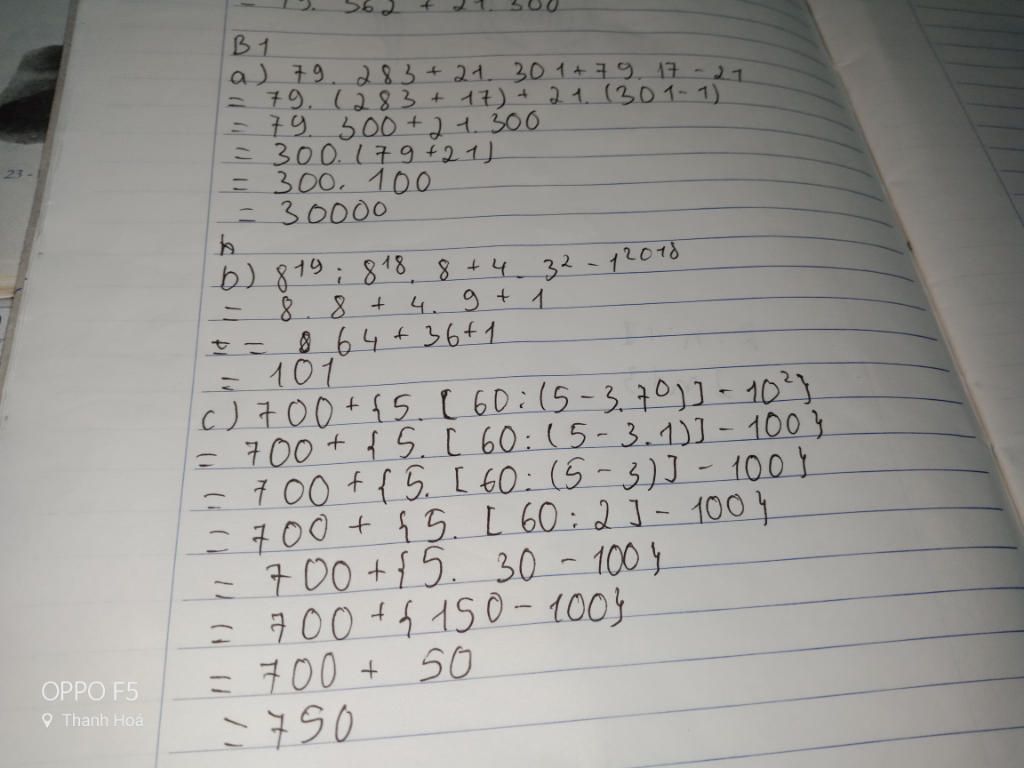 = 79. 362 + 21. 300
B1
a) 79. 283 + 21. 301 + 79. 17 - 21
= 79. (283 + 17) + 21. (301 - 1)
= 79. 300 + 21. 300
= 300. (79 + 21)
= 300. 100
= 30000
b) 8¹⁹ : 8¹⁸. 8 + 4. 3² - 1²⁰¹⁸
= 8. 8 + 4. 9 + 1
= = 8 64 + 36 + 1
= 101
c) 700 + {5. [60 : (5 - 3.7⁰)] - 10²}
= 700 + {5. [60 : (5 - 3.1)] - 100}
= 700 + {5. [60 : (5 - 3)] - 100}
= 700 + {5. [60 : 2] - 100}
= 700 + {5. 30 - 100}
= 700 + {150 - 100}
= 700 + 50
= 750
23 -
OPPO F5
Thanh Hoá